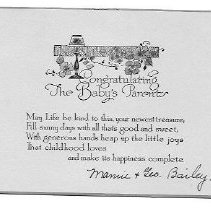 Congratulating
The Baby's Parents
May Life be kind to this, your newest treasure,
Fill sunny days with all that's good and sweet,
With generous hands heap up the little joys
That childhood loves
and make its happiness complete
Mamie & Geo. Bailey.